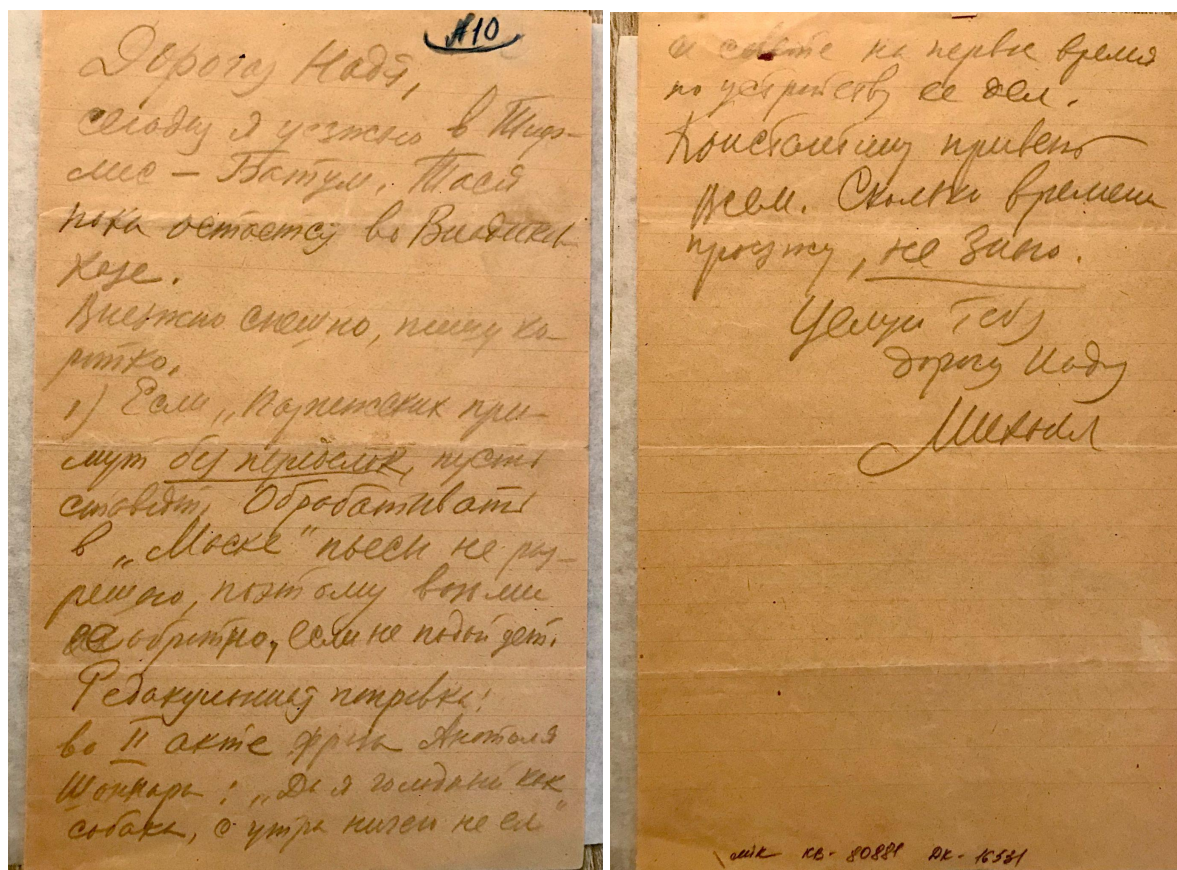 А10
Дорогая Надя,
сегодня я уезжаю в Тиф-
лис — Батум. Тася
пока остается во Владикав-
казе.
Выезжаю спешно, пишу ко-
ротко.
1) Если „Парижских при-
мут без переделок, пусть
ставят. Обрабатывать
в „Маске" пьесы не раз-
решаю, поэтому возьми
ее обратно, если не подойдет.
Редакционная поправка:
во II акте фраза Анатоля
Шоннара: „Да я голодный как
собака, с утра ничего не ел"
и совете на первое время
по устройству ее дел.
Константину привет
всем. Сколько времени
проезжу, не знаю.
Целую Тебя
дорогую Надю
Михаил
МТК КВ- 80881 ДК- 16531